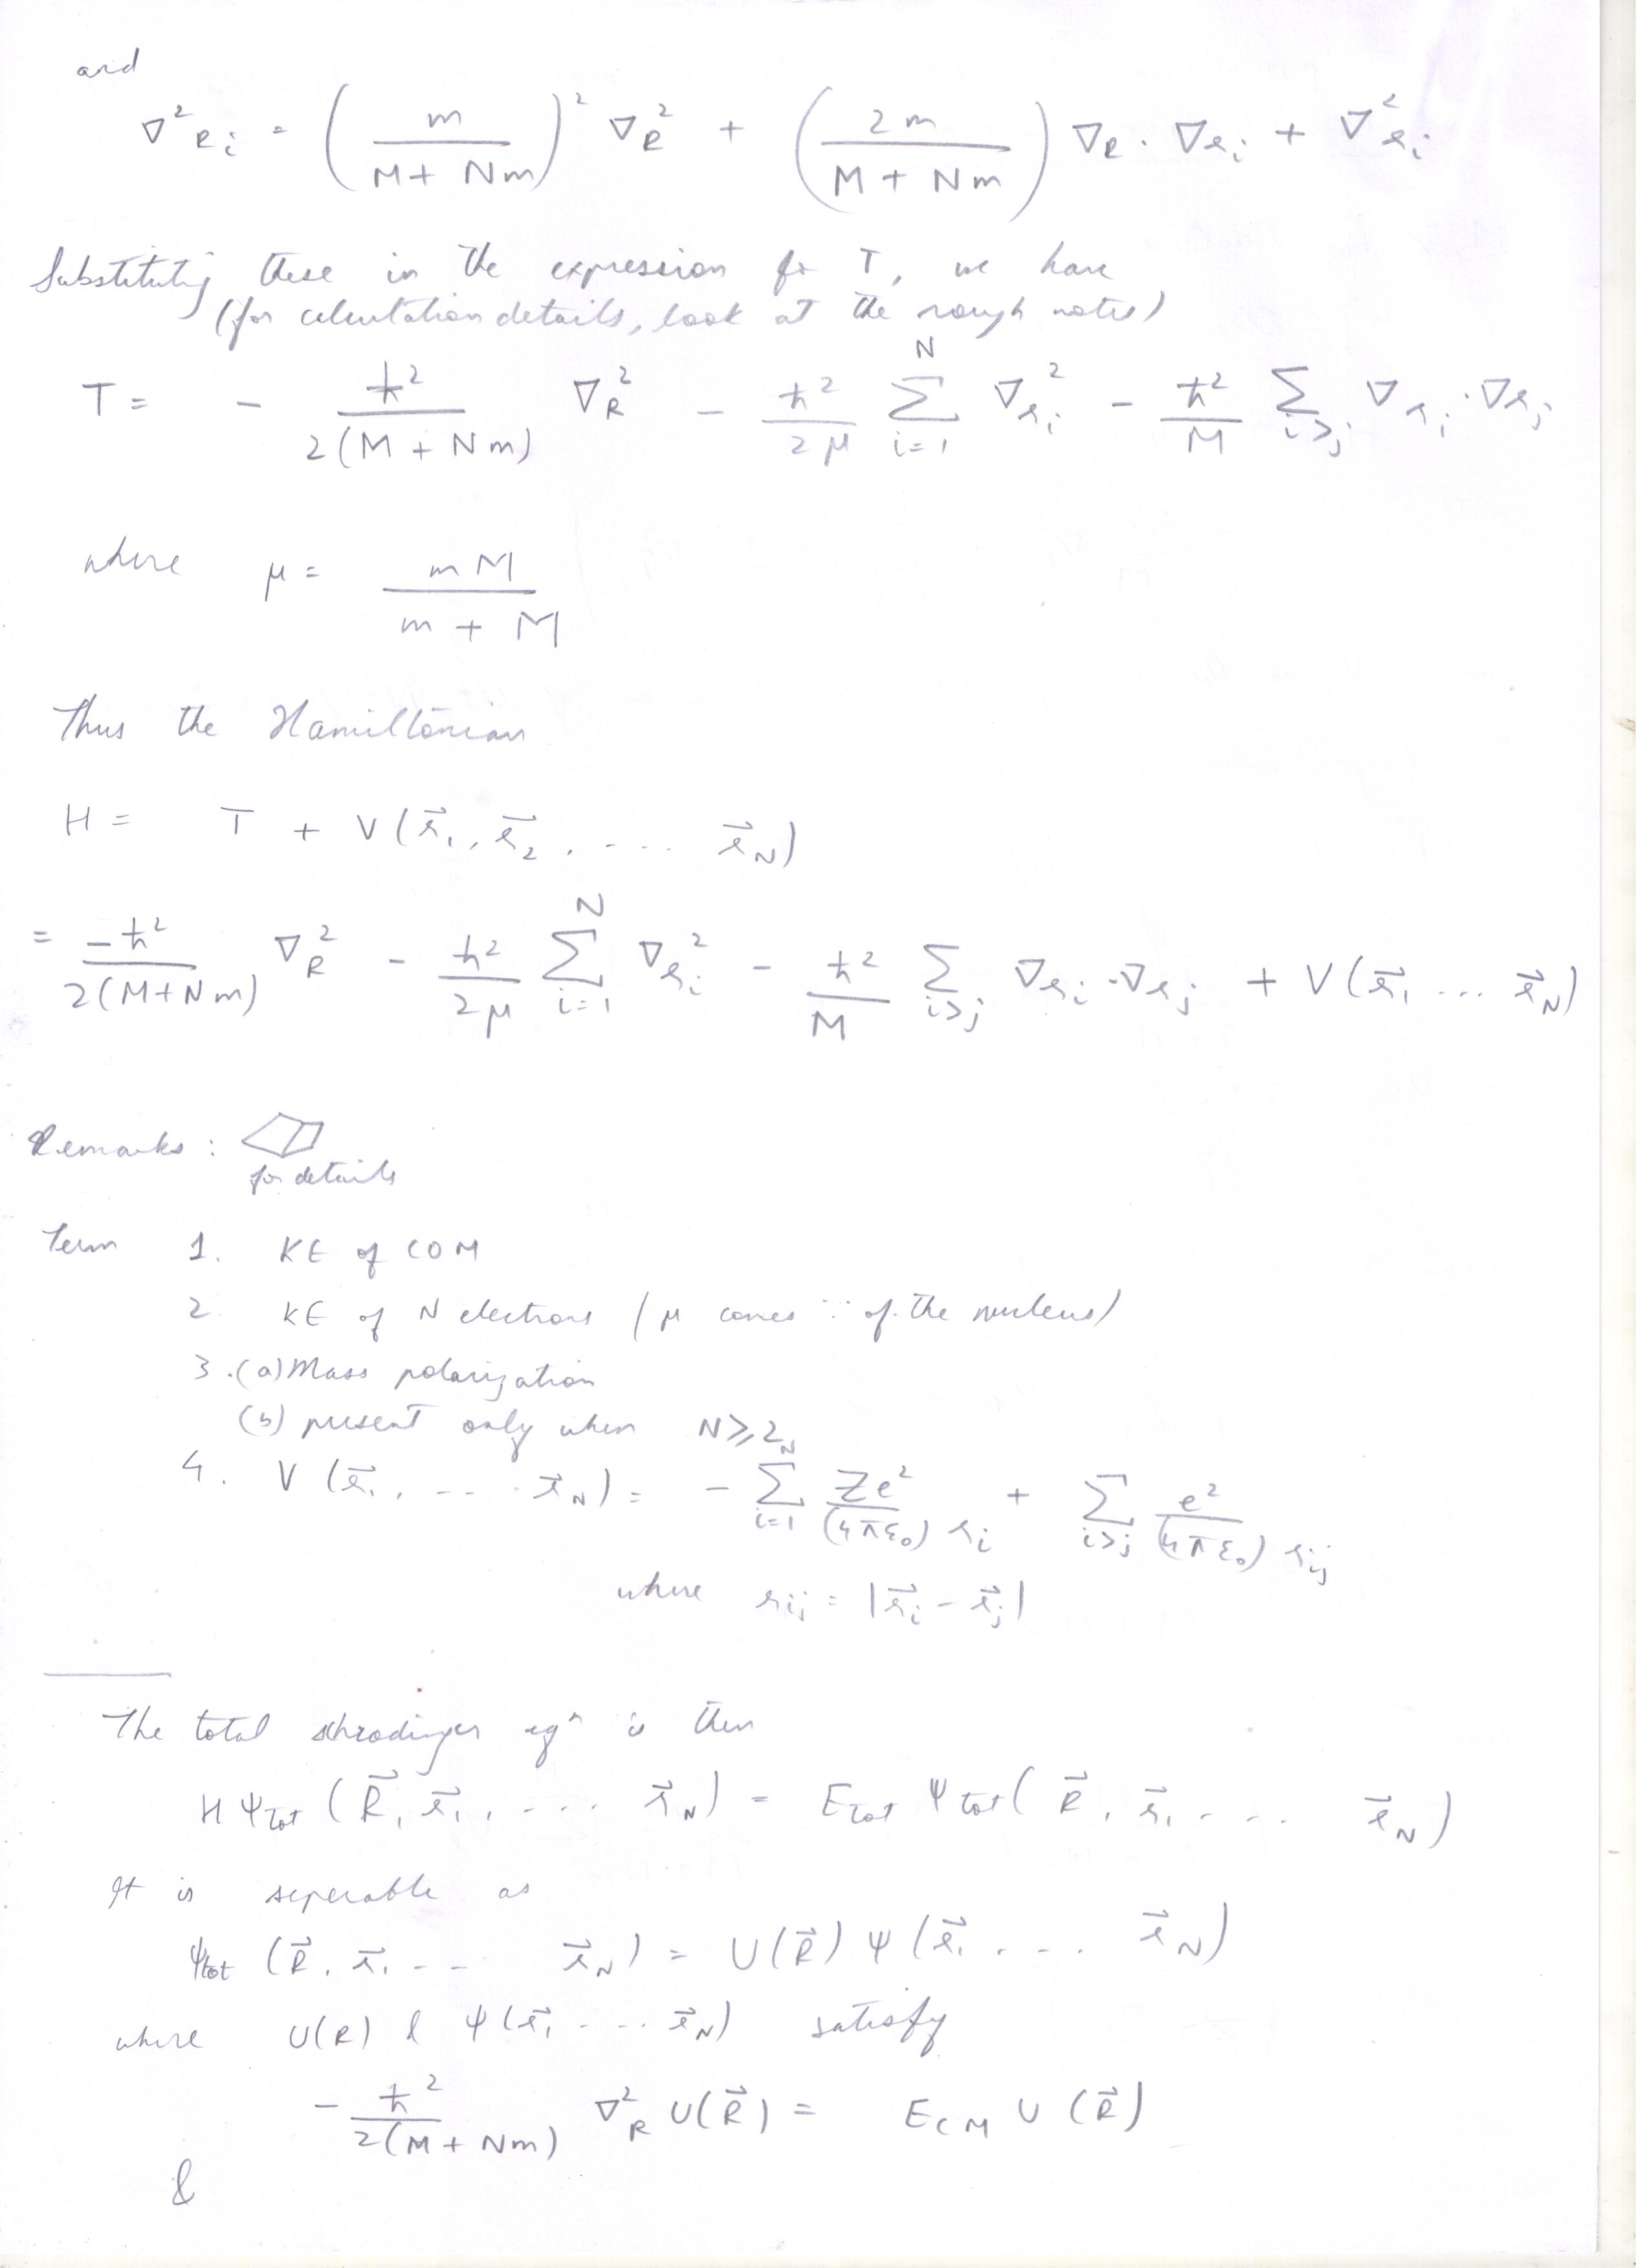 and
∇²R_i = (m / (M + Nm))² ∇_R² + (2m / (M + Nm)) ∇_R . ∇_{r_i} + ∇²_{r_i}
Substituting these in the expression for T, we have
(for calculation details, look at the rough notes)
T = - ħ² / 2(M + Nm) ∇_R² - ħ²/2μ Σ_{i=1}^{N} ∇_{r_i}² - ħ²/M Σ_{i>j} ∇_{r_i} . ∇_{r_j}
where μ = mM / (m + M)
Thus the Hamiltonian
H = T + V(r⃗₁, r⃗₂, .... r⃗_N)
= -ħ² / 2(M+Nm) ∇_R² - ħ²/2μ Σ_{i=1}^{N} ∇_{r_i}² - ħ²/M Σ_{i>j} ∇_{r_i} . ∇_{r_j} + V(r⃗₁ ... r⃗_N)
Remarks :
for details
Term 1. KE of COM
2. KE of N electrons (μ comes ∵ of the nucleus)
3.(a) Mass polarization
(b) present only when N ⩾ 2
4. V(r⃗₁, .... r⃗_N) = - Σ_{i=1}^{N} Ze² / (4πε₀) r_i + Σ_{i>j} e² / (4πε₀) r_ij
where r_ij = |r⃗_i - r⃗_j|
The total schrodinger eqⁿ is then
H ψ_tot (R⃗, r⃗₁, .... r⃗_N) = E_tot ψ_tot (R⃗, r⃗₁ .... r⃗_N)
It is seperable as
ψ_tot (R⃗, r⃗₁ -- r⃗_N) = U(R⃗) ψ(r⃗₁ .... r⃗_N)
where U(R) & ψ(r⃗₁ .... r⃗_N) satisfy
- ħ² / 2(M + Nm) ∇²_R U(R⃗) = E_CM U(R⃗)
&